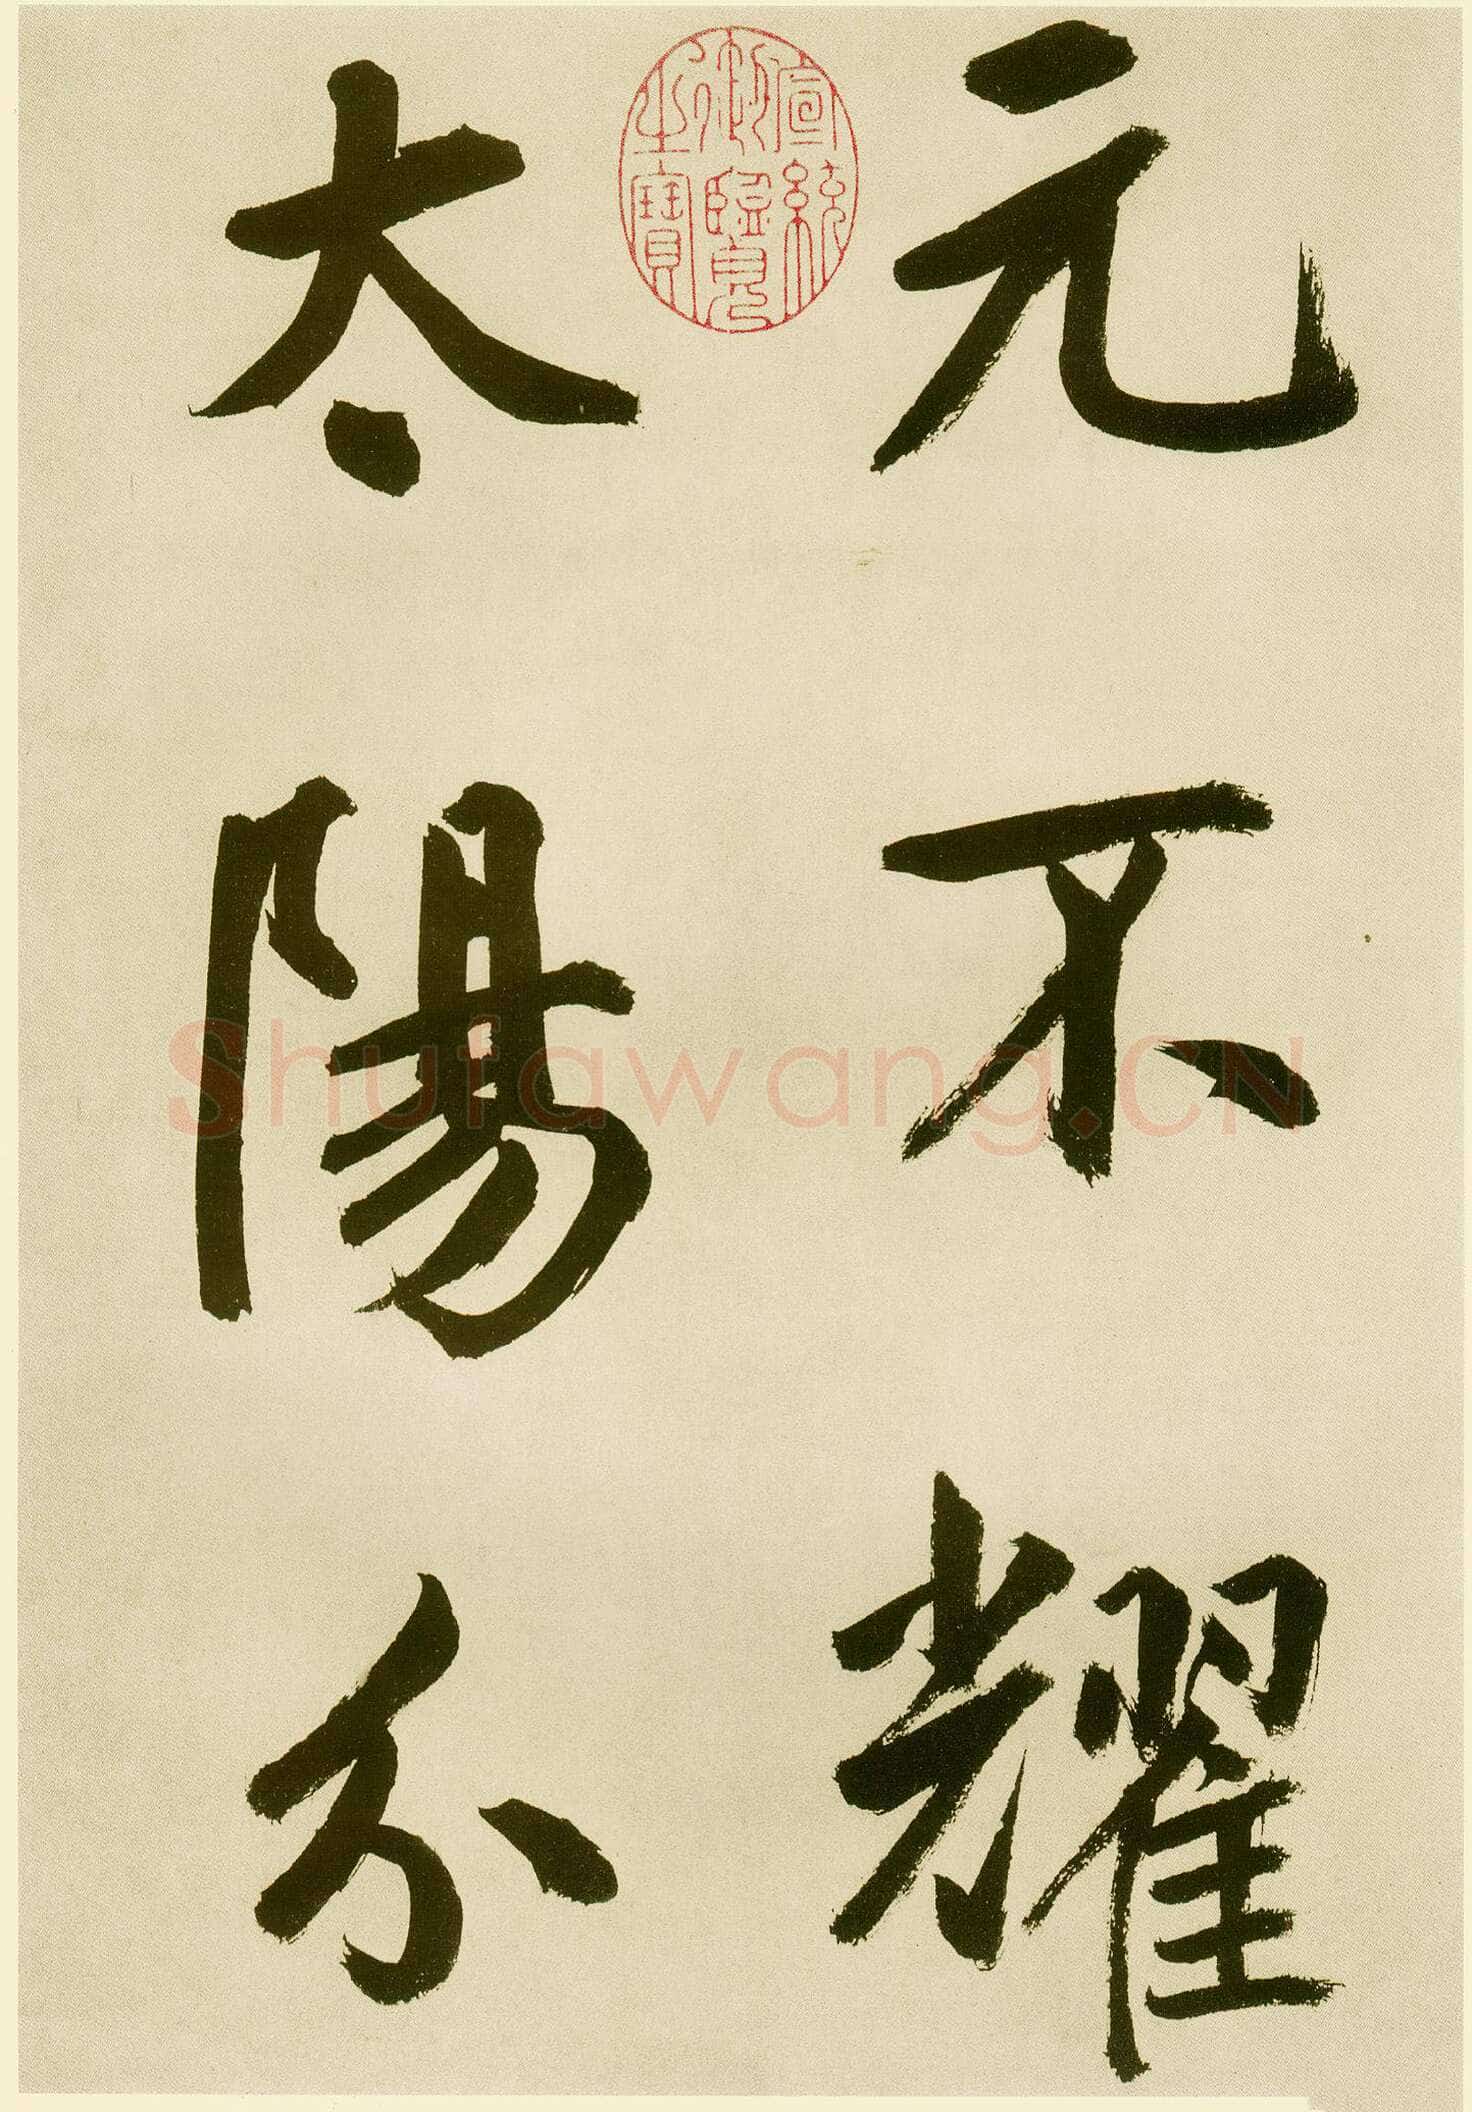 元不耀
太陽分
宣統
御覽
之寶
Shufawang.CN